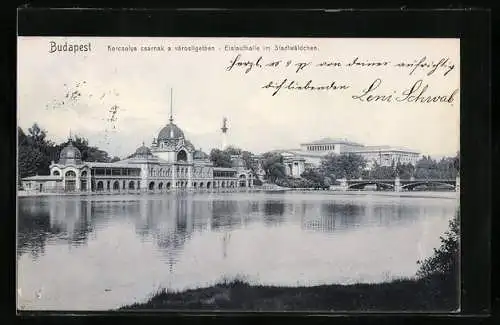 Budapest
Korcsolya csarnok a városligetben - Eislaufhalle im Stadtwäldchen.
herzl. von deiner aufrichtig
dich liebenden Leni Schwab